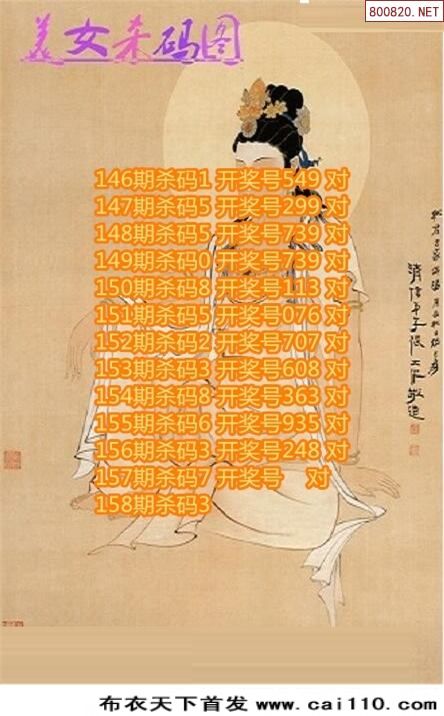 800820.NET
美女杀码图
146期杀码1 开奖号549 对
147期杀码5 开奖号299 对
148期杀码5 开奖号739 对
149期杀码0 开奖号739 对
150期杀码8 开奖号113 对
151期杀码5 开奖号076 对
152期杀码2 开奖号707 对
153期杀码3 开奖号608 对
154期杀码8 开奖号363 对
155期杀码6 开奖号935 对
156期杀码3 开奖号248 对
157期杀码7 开奖号 对
158期杀码3
布衣天下首发 www.cai110.com